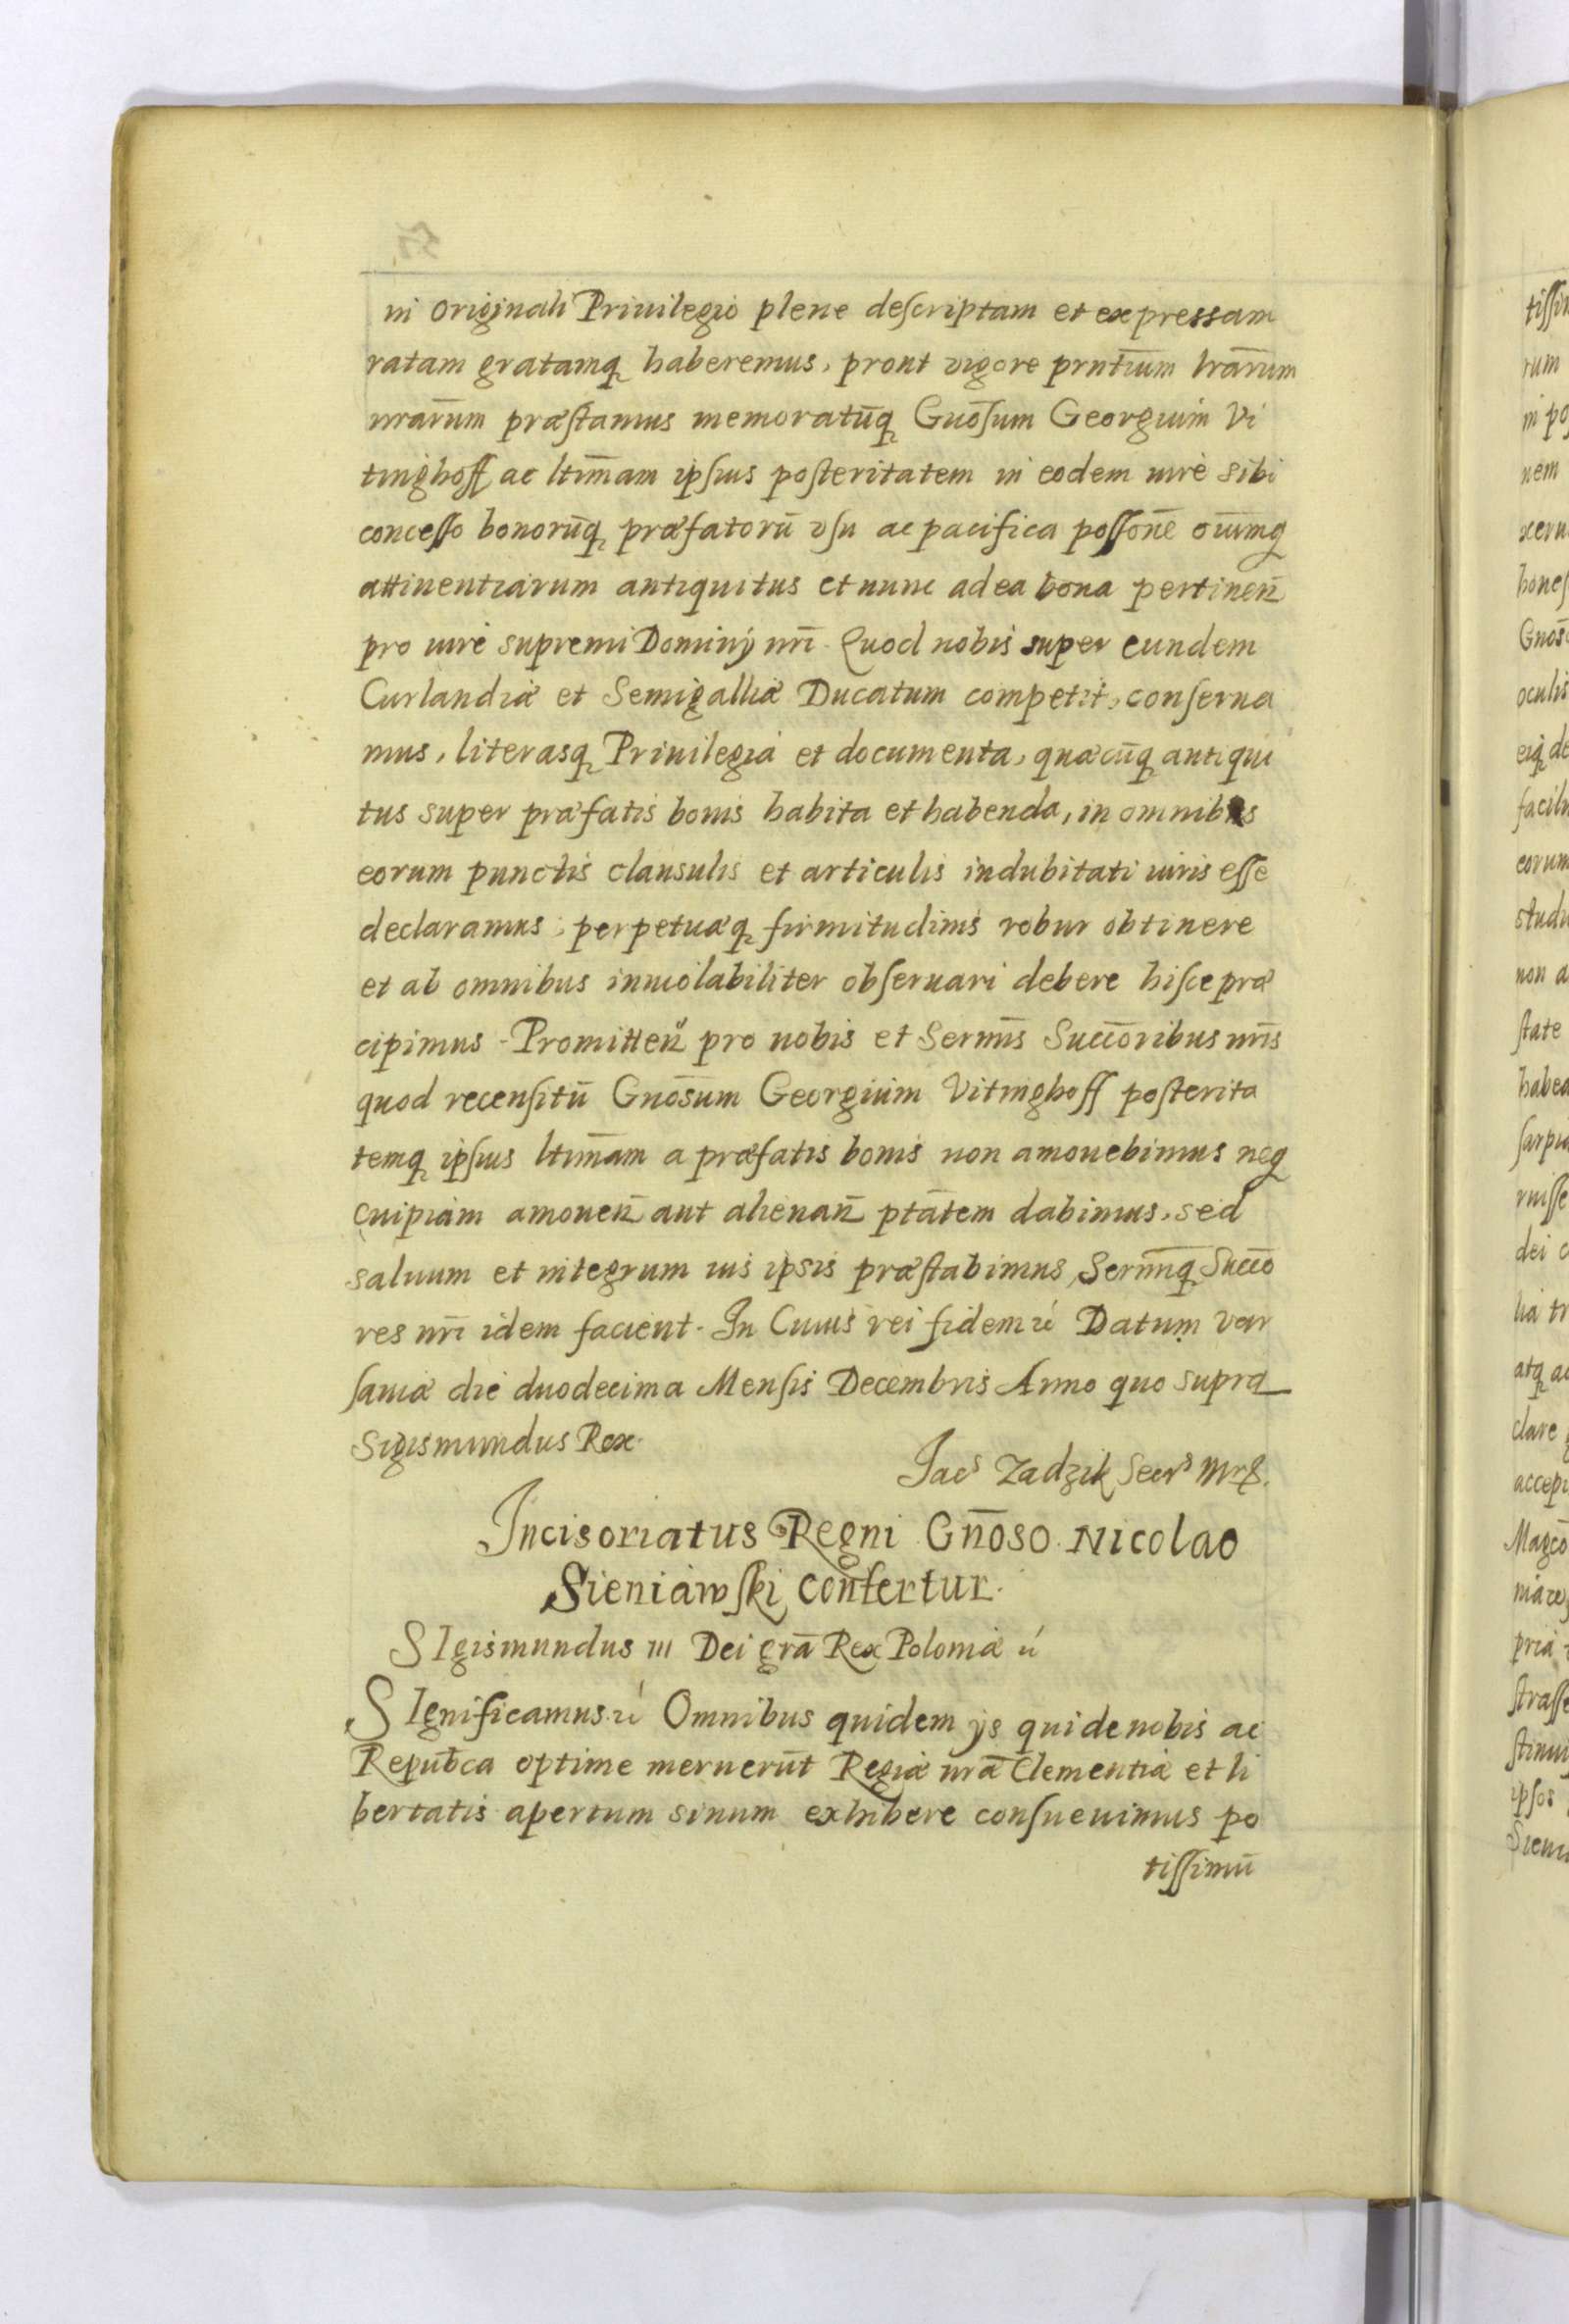 in originali Priuilegio plene deſcriptam et expressam
ratam gratamq haberemus, prout vigore prnti̅um lra̅rum
nrarum̅ præſtamus memoratu̅q Gno̅ſum Georgium Vi
tinghoff ac ltim̅am ipſius poſteritatem in eodem iure sibi
conceſſo bonoru̅q præfatoru̅ vſu ac pacifica poſſone̅ oium̅q
attinentiarum antiquitus et nunc ad ea bona pertinen̅
pro iure supremi Dominÿ nri̅. Quod nobis super eundem
Curlandiæ et Semigalliæ Ducatum competit, conſerua
mus, literasq Priuilegia et documenta, quæcu̅q antiqui
tus super præfatis bonis habita et habenda, in omnibus
eorum punctis clausulis et articulis indubitati iuris eſſe
declaramus, perpetuæq firmitudinis robur obtinere
et ab omnibus inuiolabiliter obſeruari debere hiſce præ
cipimus. Promitten̅ pro nobis et Sermis̅ Succo̅ribus nris̅
quod recenſitu̅ Gno̅sum Georgium Vitinghoff poſterita
temq ipſius ltim̅am a præfatis bonis non amouebimus neq
cuipiam amouen̅ aut alienan̅ pta̅tem dabimus, sed
saluum et integrum ius ipsis præſtabimus, Sermiq̅ Succo̅
res nri̅ idem facient. In Cuius rei fidem ꝛć Datum Var
ſauiæ die duodecima Menſis Decembris Anno quo supra
Sigismundus Rex.
Jacs Zadzik Secrs Mrꝗ.
Incisoriatus Regni Gn̅oso Nicolao
Sieniawſki confertur.
SIgismundus III Dei gra̅ Rex Poloniæ ꝛć
SIgnificamus ꝛć Omnibus quidem ÿs qui de nobis ac
Repub̅ca optime meruerut̅ Regiæ nræ̅ Clementiæ et li
bertatis apertum sinum exhibere conſueuimus po
tiſſimu̅